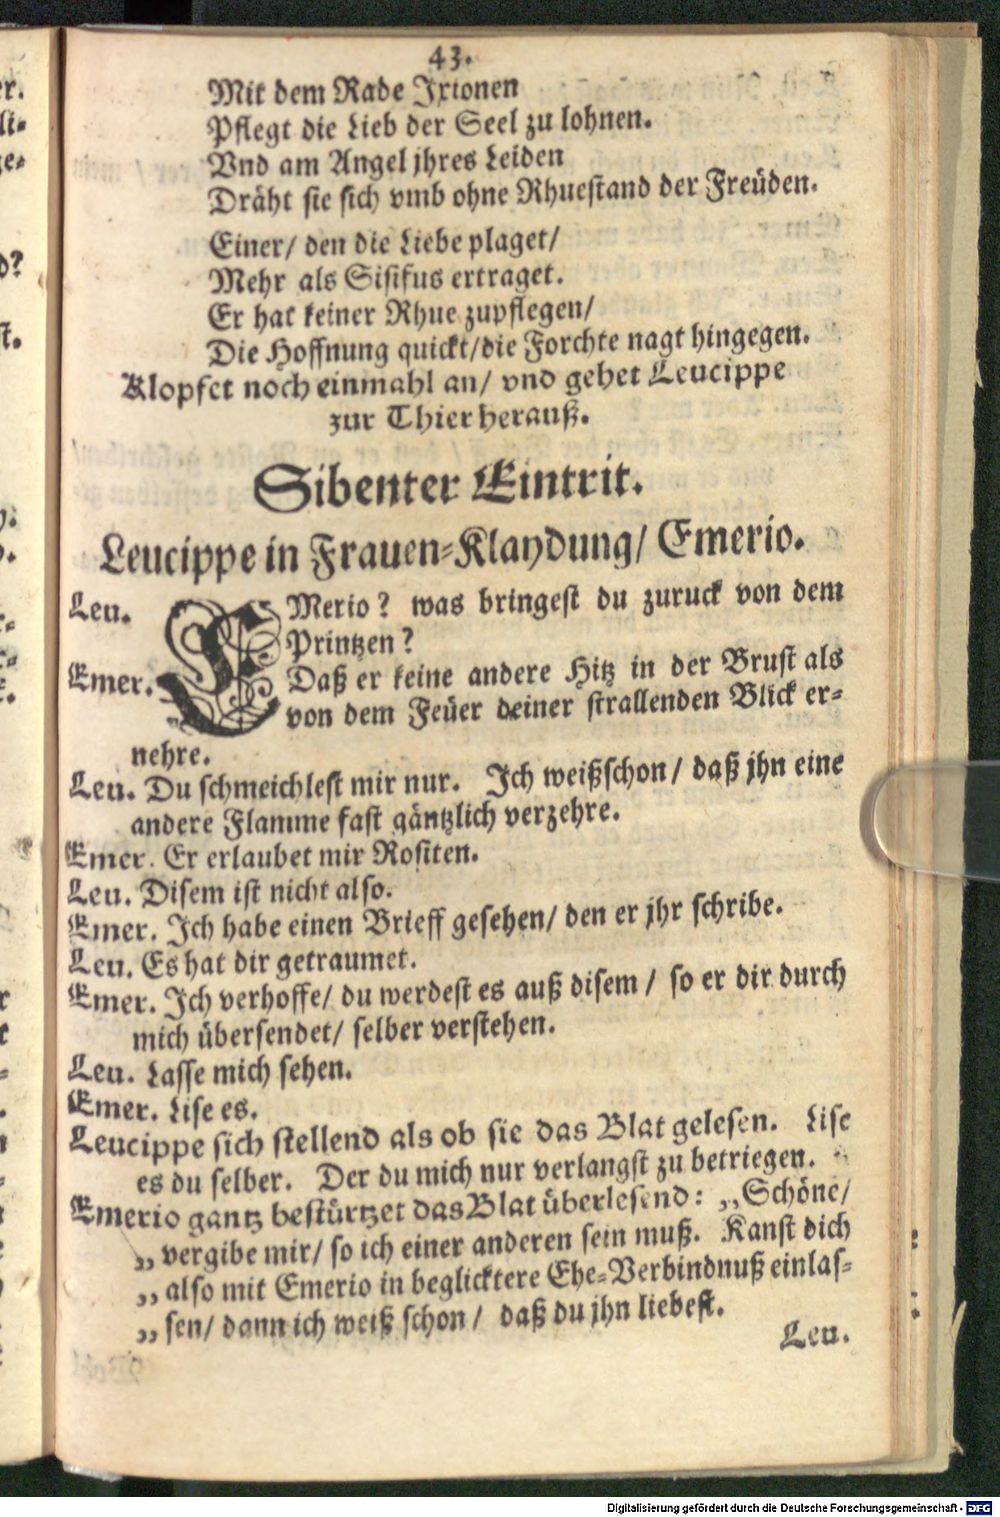 43.
Mit dem Rade Ixionen
Pflegt die Lieb der Seel zu lohnen.
Vnd am Angel jhres Leiden
Dräht sie sich vmb ohne Rhuestand der Freüden.
Einer/ den die Liebe plaget/
Mehr als Sisifus ertraget.
Er hat keiner Rhue zupflegen/
Die Hoffnung quickt/die Forchte nagt hingegen.
Klopfet noch einmahl an/ vnd gehet Leucippe
zur Thier herauß.
Sibenter Eintrit.
Leucippe in Frauen-Klaydung/ Emerio.
Leu. EMerio? was bringest du zuruck von dem
Printzen?
Emer. Daß er keine andere Hitz in der Brust als
von dem Feüer deiner strallenden Blick er-
nehre.
Leu. Du schmeichlest mir nur. Ich weißschon/ daß jhn eine
andere Flamme fast gäntzlich verzehre.
Emer. Er erlaubet mir Rositen.
Leu. Disem ist nicht also.
Emer. Ich habe einen Brieff gesehen/ den er jhr schribe.
Leu. Es hat dir getraumet.
Emer. Ich verhoffe/ du werdest es auß disem / so er dir durch
mich übersendet/ selber verstehen.
Leu. Lasse mich sehen.
Emer. Lise es.
Leucippe sich stellend als ob sie das Blat gelesen. Lise
es du selber. Der du mich nur verlangst zu betriegen.
Emerio gantz bestürtzet das Blat überlesend: „Schöne/
„ vergibe mir/ so ich einer anderen sein muß. Kanst dich
„ also mit Emerio in beglicktere Ehe-Verbindnuß einlas-
„ sen/ dann ich weiß schon / daß du jhn liebest.
Leu.
Digitalisierung gefördert durch die Deutsche Forschungsgemeinschaft - DFG